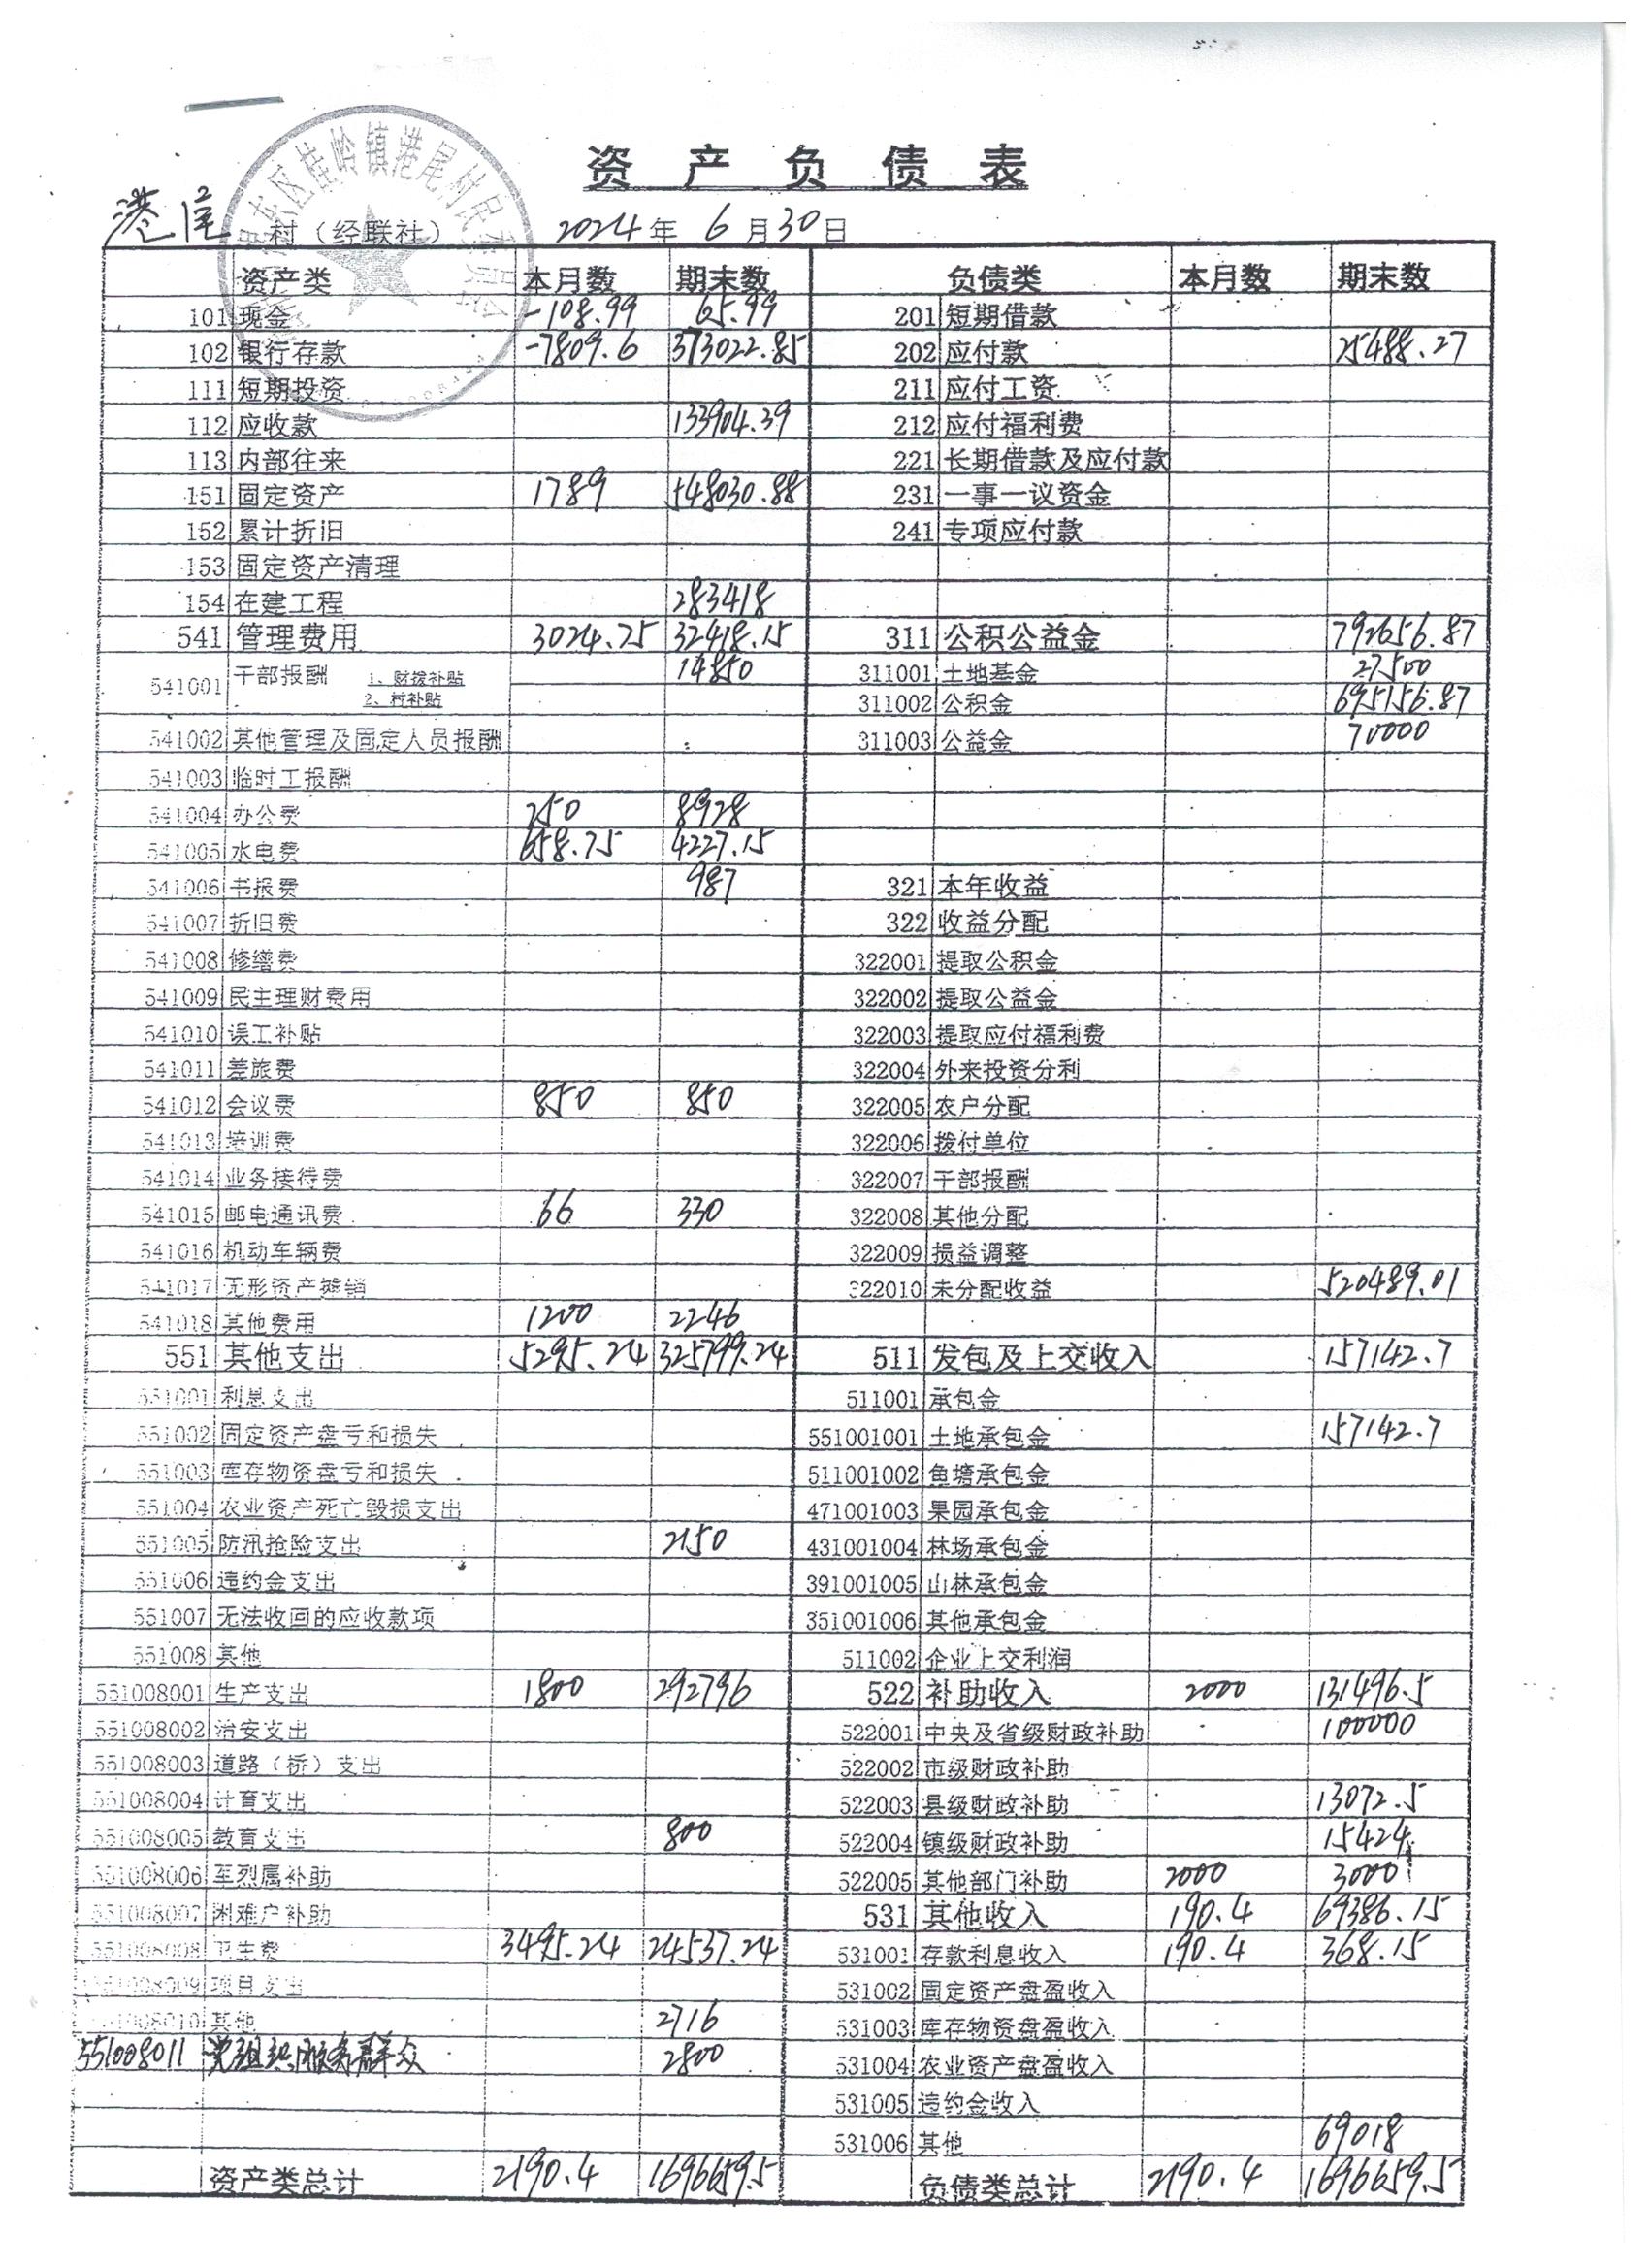 资 产 负 债 表
港尾 村（经联社） 2024年 6月30日
资产类 本月数 期末数 负债类 本月数 期末数
101 现金 -108.99 65.99 201 短期借款
102 银行存款 -7809.6 373022.85 202 应付款 25488.27
111 短期投资 211 应付工资
112 应收款 133904.39 212 应付福利费
113 内部往来 221 长期借款及应付款
151 固定资产 1789 548030.88 231 一事一议资金
152 累计折旧 241 专项应付款
153 固定资产清理
154 在建工程 283418
541 管理费用 3024.75 32418.15 311 公积公益金 792656.87
541001 干部报酬 1、财拨补贴 14850 311001 土地基金 27500
2、村补贴 311002 公积金 695156.87
541002 其他管理及固定人员报酬 311003 公益金 70000
541003 临时工报酬
541004 办公费 250 8928
541005 水电费 658.75 4227.15
541006 书报费 987 321 本年收益
541007 折旧费 322 收益分配
541008 修缮费 322001 提取公积金
541009 民主理财费用 322002 提取公益金
541010 误工补贴 322003 提取应付福利费
541011 差旅费 322004 外来投资分利
541012 会议费 850 850 322005 农户分配
541013 培训费 322006 拨付单位
541014 业务接待费 322007 干部报酬
541015 邮电通讯费 66 330 322008 其他分配
541016 机动车辆费 322009 损益调整
541017 无形资产摊销 322010 未分配收益 520489.01
541018 其他费用 1200 2246
551 其他支出 5295.24 325799.24 511 发包及上交收入 157142.7
551001 利息支出 511001 承包金
551002 固定资产盘亏和损失 551001001 土地承包金 157142.7
551003 库存物资盘亏和损失 511001002 鱼塘承包金
551004 农业资产死亡毁损支出 471001003 果园承包金
551005 防汛抢险支出 2150 431001004 林场承包金
551006 违约金支出 391001005 山林承包金
551007 无法收回的应收款项 351001006 其他承包金
551008 其他 511002 企业上交利润
551008001 生产支出 1800 292796 522 补助收入 2000 131496.5
551008002 治安支出 522001 中央及省级财政补助 100000
551008003 道路（桥）支出 522002 市级财政补助
551008004 计育支出 522003 县级财政补助 13072.5
551008005 教育支出 800 522004 镇级财政补助 15424
551008006 军烈属补助 522005 其他部门补助 2000 3000
551008007 困难户补助 531 其他收入 190.4 69386.15
551008008 卫生费 3495.24 24537.24 531001 存款利息收入 190.4 368.15
551008009 项目支出 531002 固定资产盘盈收入
551008010 其他 2716 531003 库存物资盘盈收入
551008011 党组织服务群众 2800 531004 农业资产盘盈收入
531005 违约金收入
531006 其他 69018
资产类总计 2190.4 1696659.5 负债类总计 2190.4 1696659.5
东区桂岭镇港尾村民委员会